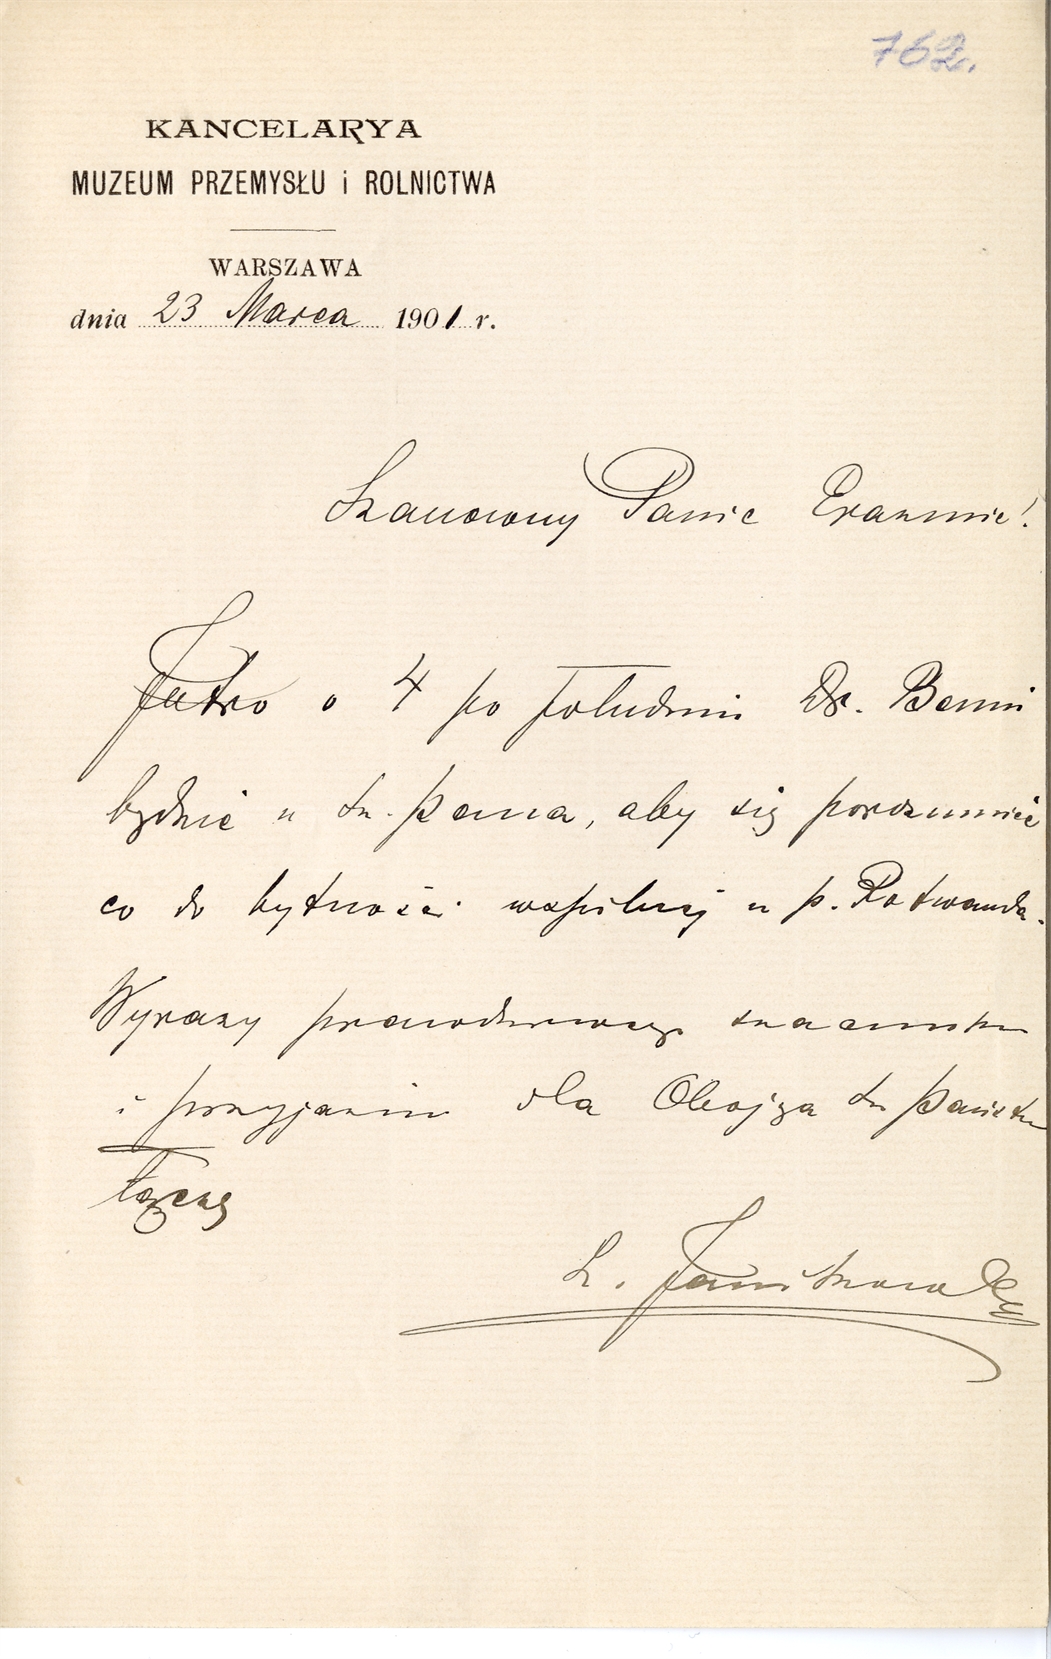 762.
KANCELARYA
MUZEUM PRZEMYSŁU i ROLNICTWA
WARSZAWA
dnia 23 Marca 1901 r.
Szanowny Panie Erazmie!
Jutro o 4 po południu Dr. Benni
będzie u Sz. Pana, aby się porozumieć
co do bytności wspólnej u p. Rotwanda.
Wyrazy prawdziwego szacunku
i przyjaźni dla Obojga Sz Państwa
łączę
L. Janikowski